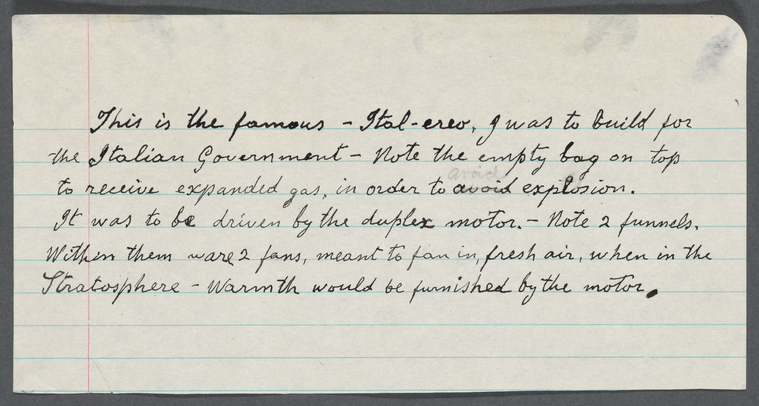 This is the famous - Ital-ereo, I was to build for
the Italian Government - Note the empty bag on top
avoid
to receive expanded gas, in order to avoid explosion.
It was to be driven by the duplex motor. - Note 2 funnels.
Within them ware 2 fans, meant to fan in, fresh air, when in the
Stratosphere - Warmth would be furnished by the motor.